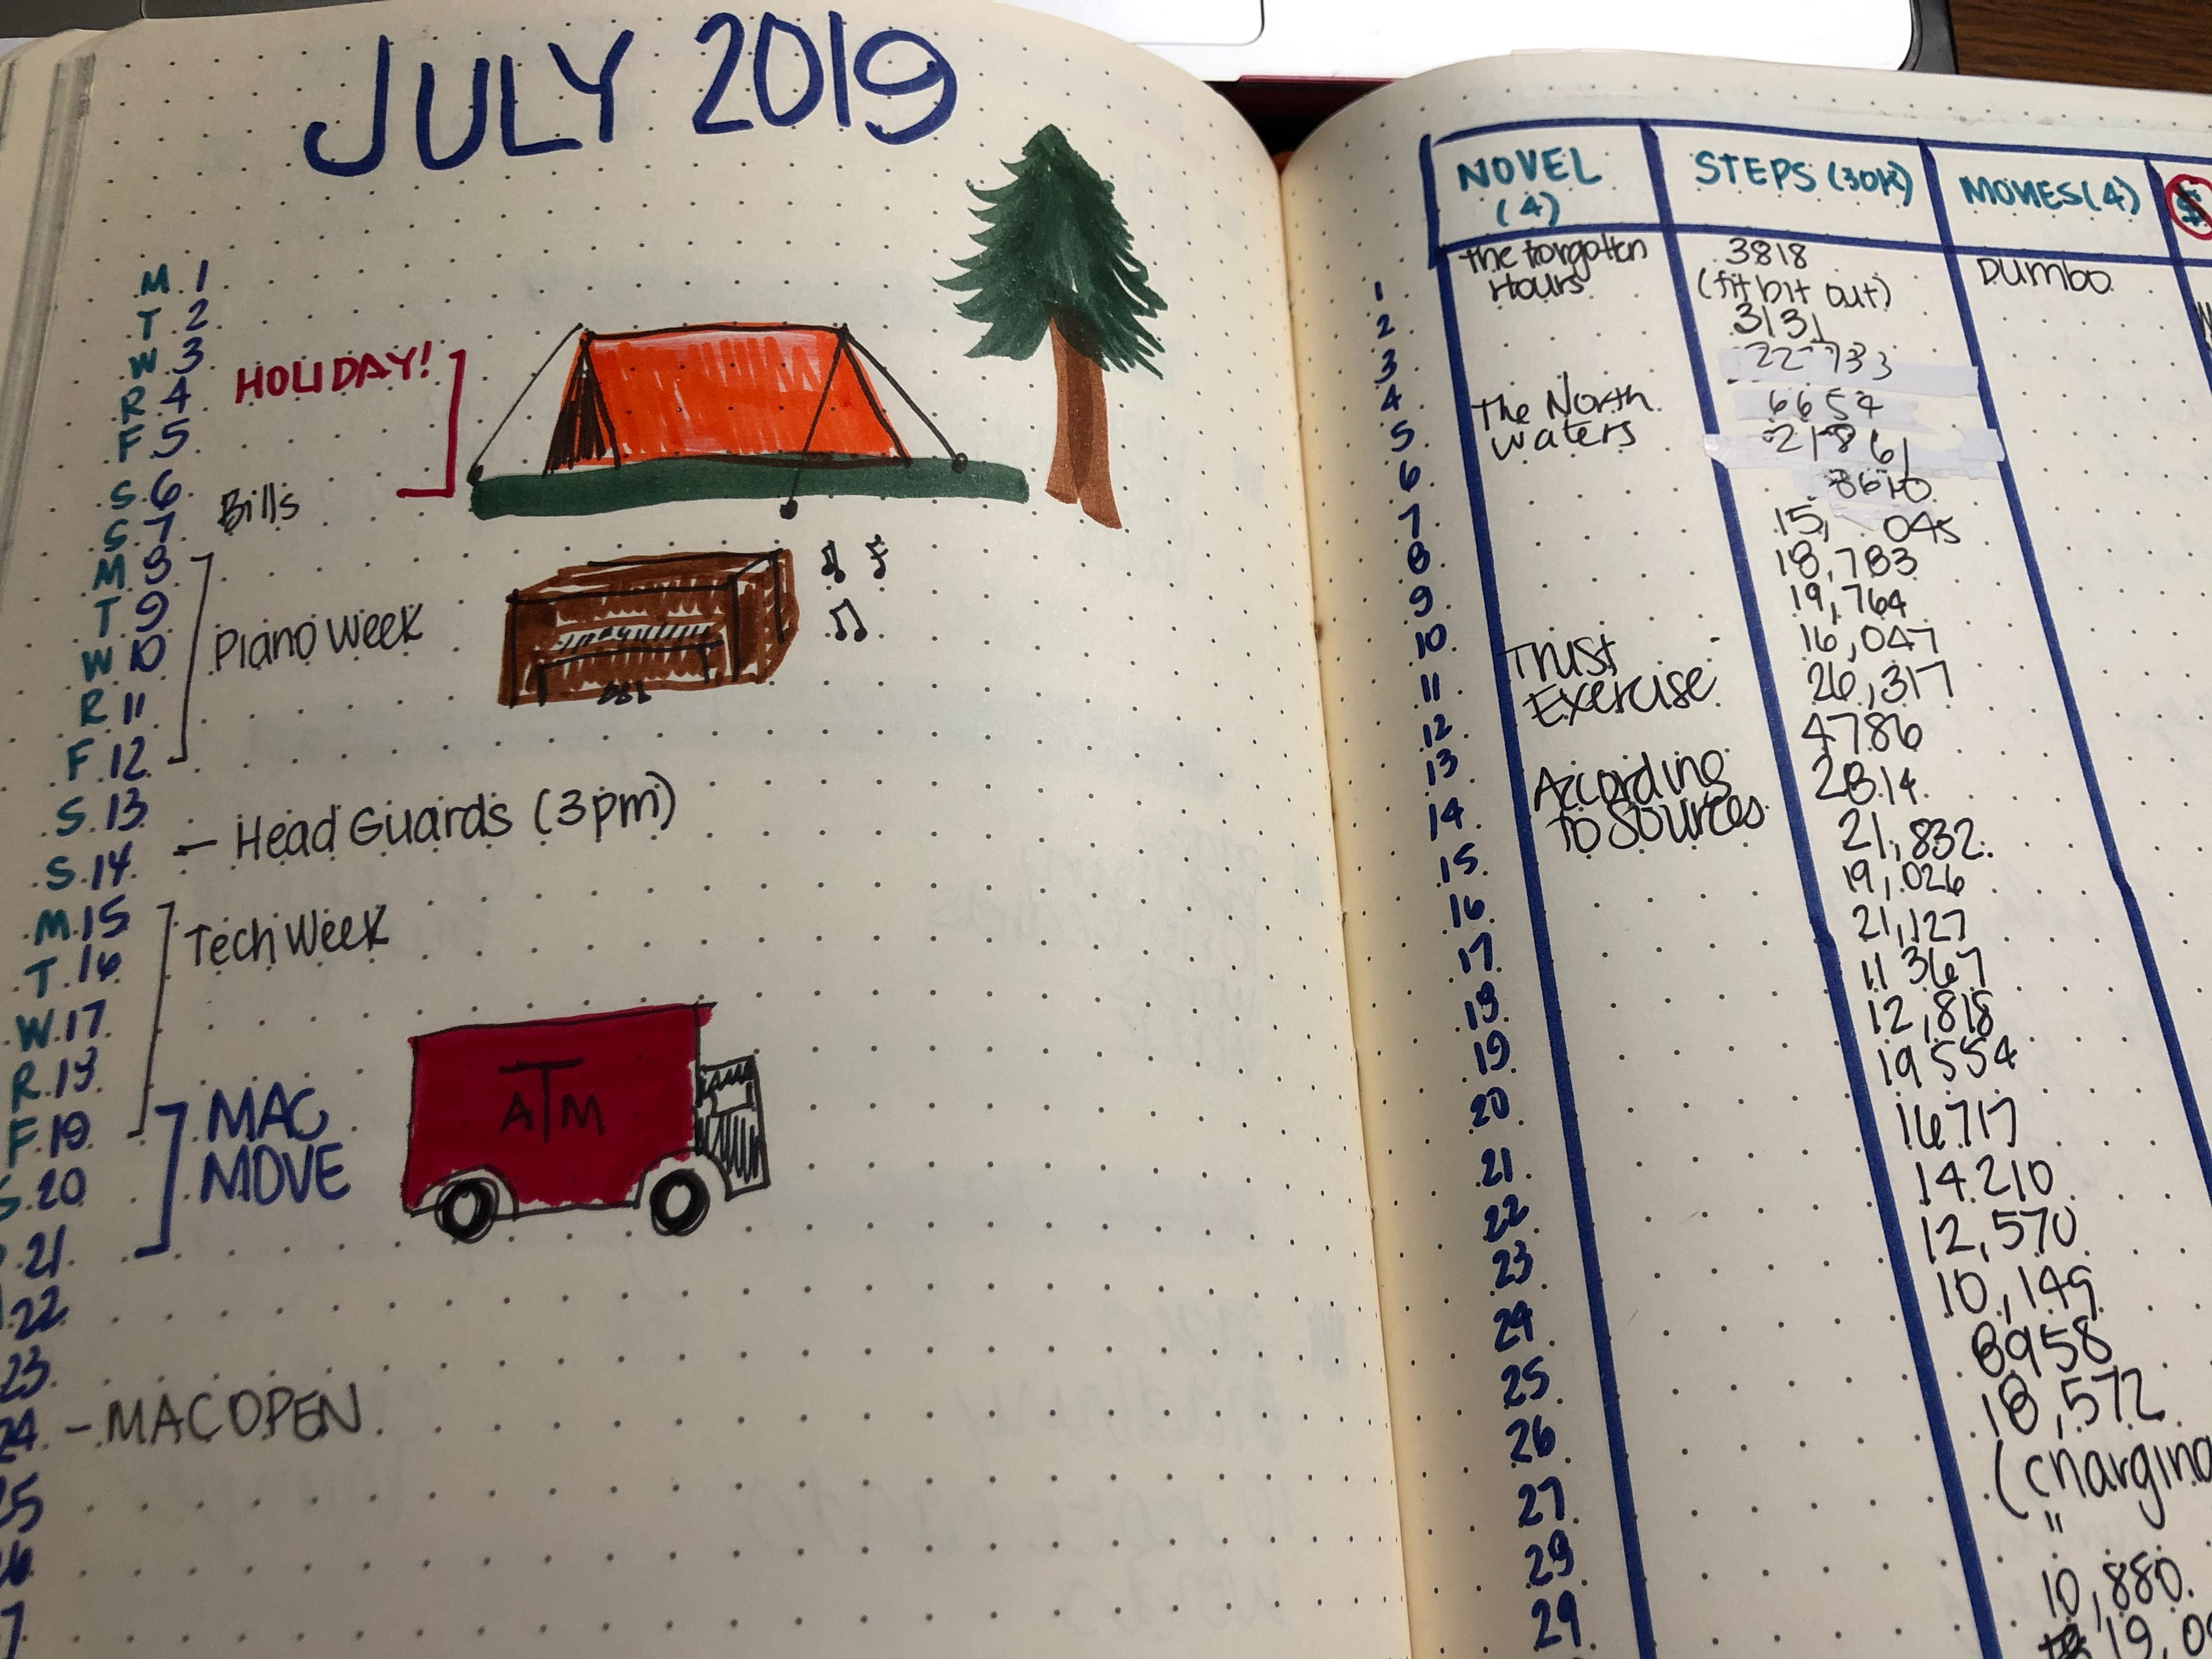 JULY 2019
M 1
T 2
W 3
R 4
F 5
S 6
S 7
M 8
T 9
W 10
R 11
F 12
S 13
S 14
M 15
T 16
W 17
R 18
F 19
S 20
21
22
23
24
HOLIDAY!
Bills
Piano Week
– Head Guards (3pm)
Tech Week
MAC
MOVE
ATM
– MAC OPEN
NOVEL
(4)
STEPS (30K)
MOVIES (4)
$
1
2
3
4
5
6
7
8
9
10
11
12
13
14
15
16
17
18
19
20
21
22
23
24
25
26
27
28
29
The Forgotten
Hours
The North
Waters
Trust
Exercise
According
To Sources
3818
(fit bit out)
3131
22733
6654
21861
8610
15, 045
18,783
19,764
16,047
26,317
4786
2814
21,832
19,026
21,127
11367
12,818
19554
16717
14.210
12,570
10,149
8958
18,572
(charging
"
10,880
Dumbo